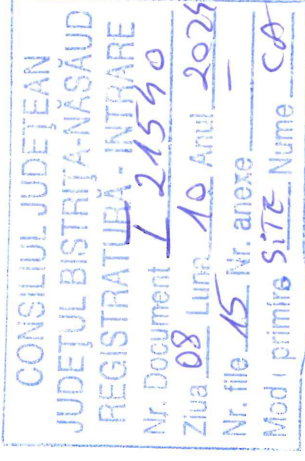 CONSILIUL JUDEȚEAN
JUDEȚUL BISTRIȚA-NĂSĂUD
REGISTRATURĂ - INTRARE
Nr. Document I 21540
Ziua 08 Luna 10 Anul 2024
Nr. file 15 Nr. anexe –
Mod primire SITE Nume CA